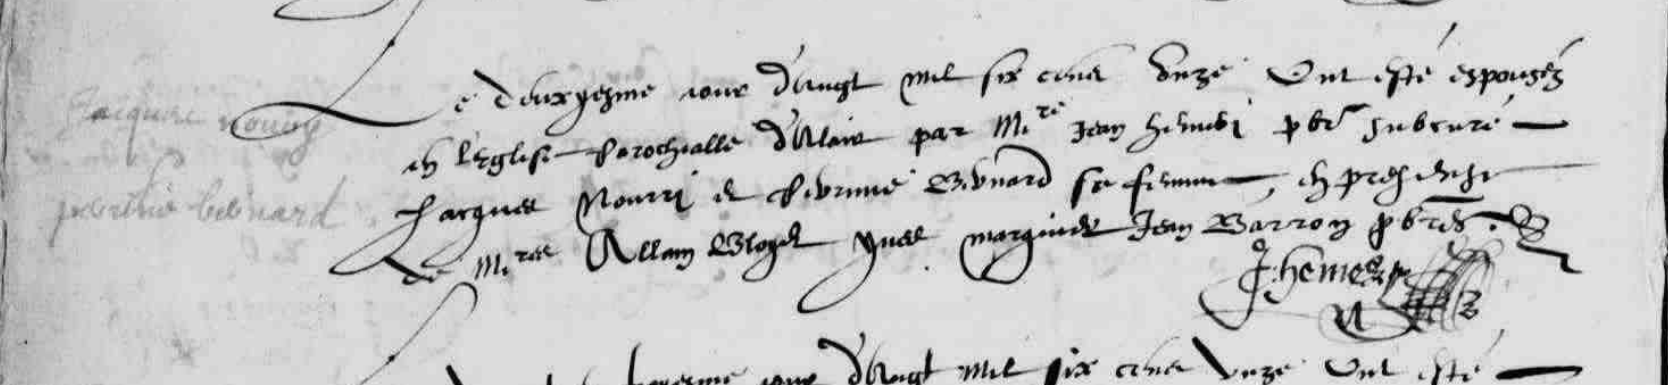 Jacques nourry
perrine besnard
Le deuxyesme jour d'Augt mil six cens Unze Ont esté espousés
en l'Eglise parochialle par M.re Jean hemeri pbre subcuré
Jacques Nourri et perrine Besnard sa femme, en presence
de M.res Allain Yves Jean Barron pbres.
J: hemeri
jour d'Augt mil six cens Unze Ont esté